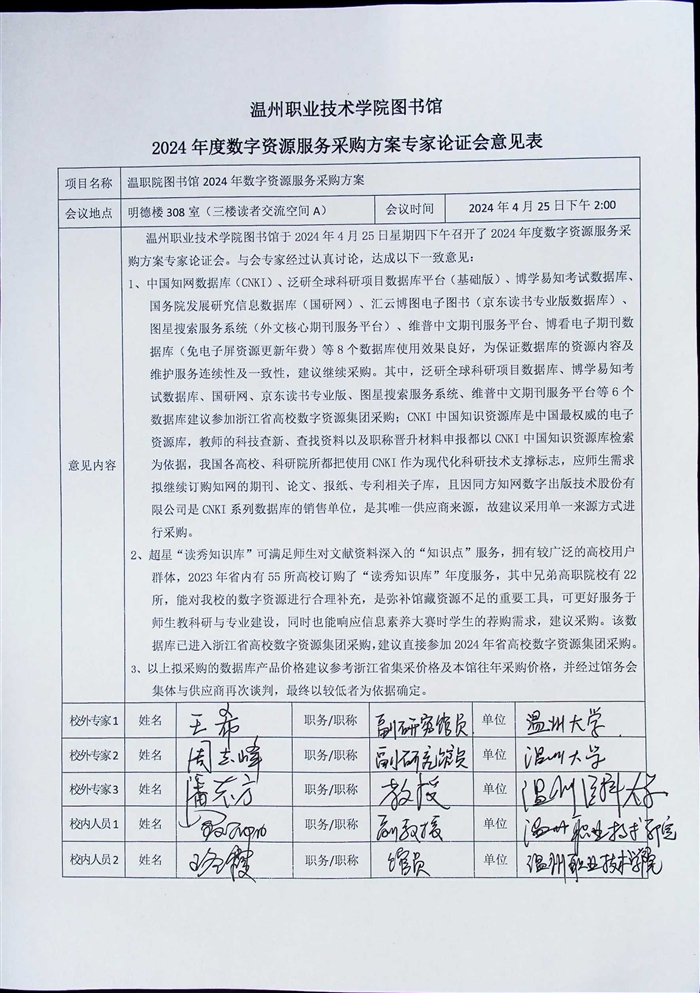 温州职业技术学院图书馆
2024 年度数字资源服务采购方案专家论证会意见表
项目名称 温职院图书馆 2024 年数字资源服务采购方案
会议地点 明德楼 308 室（三楼读者交流空间 A） 会议时间 2024 年 4 月 25 日下午 2:00
意见内容
温州职业技术学院图书馆于 2024 年 4 月 25 日星期四下午召开了 2024 年度数字资源服务采
购方案专家论证会。与会专家经过认真讨论，达成以下一致意见：
1、中国知网数据库（CNKI）、泛研全球科研项目数据库平台（基础版）、博学易知考试数据库、
国务院发展研究信息数据库（国研网）、汇云博图电子图书（京东读书专业版数据库）、
图星搜索服务系统（外文核心期刊服务平台）、维普中文期刊服务平台、博看电子期刊数
据库（免电子屏资源更新年费）等 8 个数据库使用效果良好，为保证数据库的资源内容及
维护服务连续性及一致性，建议继续采购。其中，泛研全球科研项目数据库、博学易知考
试数据库、国研网、京东读书专业版、图星搜索服务系统、维普中文期刊服务平台等 6 个
数据库建议参加浙江省高校数字资源集团采购；CNKI 中国知识资源库是中国最权威的电子
资源库，教师的科技查新、查找资料以及职称晋升材料申报都以 CNKI 中国知识资源库检索
为依据，我国各高校、科研院所都把使用 CNKI 作为现代化科研技术支撑标志，应师生需求
拟继续订购知网的期刊、论文、报纸、专利相关子库，且因同方知网数字出版技术股份有
限公司是 CNKI 系列数据库的销售单位，是其唯一供应商来源，故建议采用单一来源方式进
行采购。
2、超星“读秀知识库”可满足师生对文献资料深入的“知识点”服务，拥有较广泛的高校用户
群体，2023 年省内有 55 所高校订购了“读秀知识库”年度服务，其中兄弟高职院校有 22
所，能对我校的数字资源进行合理补充，是弥补馆藏资源不足的重要工具，可更好服务于
师生教科研与专业建设，同时也能响应信息素养大赛时学生的荐购需求，建议采购。该数
据库已进入浙江省高校数字资源集团采购，建议直接参加 2024 年省高校数字资源集团采购。
3、以上拟采购的数据库产品价格建议参考浙江省集采价格及本馆往年采购价格，并经过馆务会
集体与供应商再次谈判，最终以较低者为依据确定。
校外专家 1 姓名 王希 职务/职称 副研究馆员 单位 温州大学
校外专家 2 姓名 周志峰 职务/职称 副研究馆员 单位 温州大学
校外专家 3 姓名 潘东方 职务/职称 教授 单位 温州医科大学
校内人员 1 姓名 职务/职称 副教授 单位 温州职业技术学院
校内人员 2 姓名 职务/职称 馆员 单位 温州职业技术学院